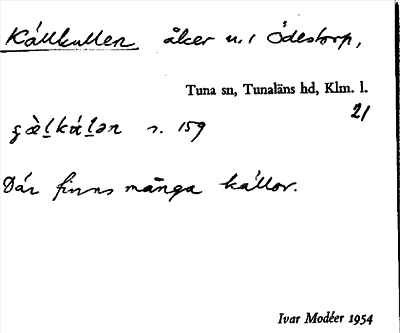 Källkullen åker u. i Ödestorp,
Tuna sn, Tunaläns hd, Klm. l.
21
s. 159
Där finns många källor.
Ivar Modéer 1954